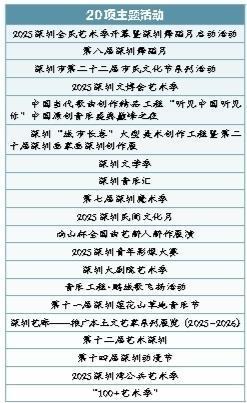 20项主题活动
2025深圳全民艺术季开幕暨深圳舞蹈月启动活动
第八届深圳舞蹈月
深圳市第二十二届市民文化节系列活动
2025深圳文博会艺术季
中国当代歌曲创作精品工程“听见中国听见
你”中国原创音乐盛典巅峰之夜
深圳“城市长卷”大型美术创作工程暨第二
十届深圳画家画深圳创作展
深圳文学季
深圳音乐汇
第七届深圳魔术季
2025深圳民间文化月
向山杯全国曲艺新人新作展演
2025深圳青年影像大赛
深圳大剧院艺术季
音乐工程·鹏城歌飞扬活动
第十一届深圳莲花山草地音乐节
深圳艺廊——推广本土文艺家系列展览（2025-2026）
第十二届艺术深圳
第十四届深圳动漫节
2025深圳湾公共艺术季
“100+艺术季”